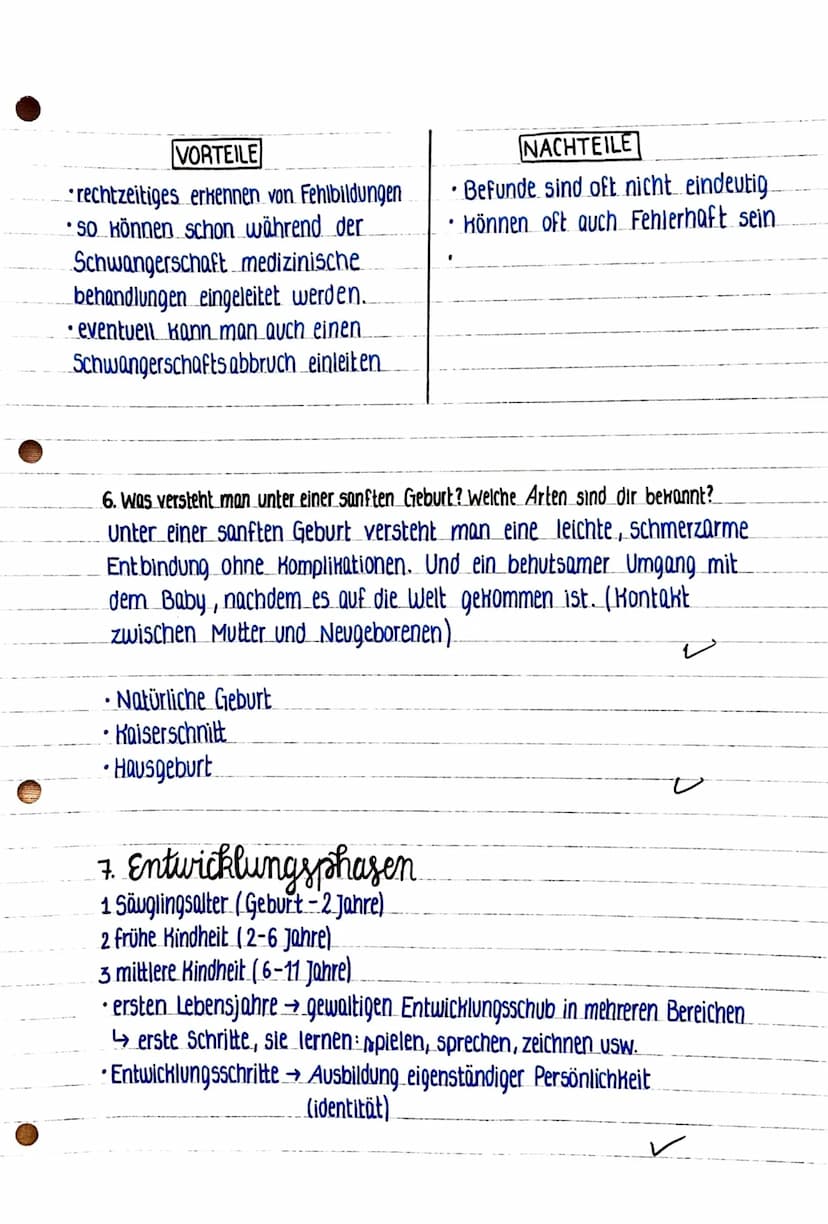 VORTEILE
• rechtzeitiges erkennen von Fehlbildungen
• so können schon während der
Schwangerschaft medizinische
behandlungen eingeleitet werden.
• eventuell kann man auch einen
Schwangerschaftsabbruch einleiten
NACHTEILE
• Befunde sind oft nicht eindeutig
• können oft auch Fehlerhaft sein
•
6. Was versteht man unter einer sanften Geburt? Welche Arten sind dir bekannt?
Unter einer sanften Geburt versteht man eine leichte, schmerzarme
Entbindung ohne Komplikationen. Und ein behutsamer Umgang mit
dem Baby, nachdem es auf die Welt gekommen ist. (Kontakt
zwischen Mutter und Neugeborenen)
• Natürliche Geburt
• Kaiserschnitt
• Hausgeburt
7. Entwicklungsphasen
1 Säuglingsalter (Geburt - 2 Jahre)
2 frühe Kindheit (2-6 Jahre)
3 mittlere Kindheit (6-11 Jahre)
• ersten Lebensjahre → gewaltigen Entwicklungsschub in mehreren Bereichen
↳ erste Schritte, sie lernen: spielen, sprechen, zeichnen usw.
• Entwicklungsschritte → Ausbildung eigenständiger Persönlichkeit
(identität)